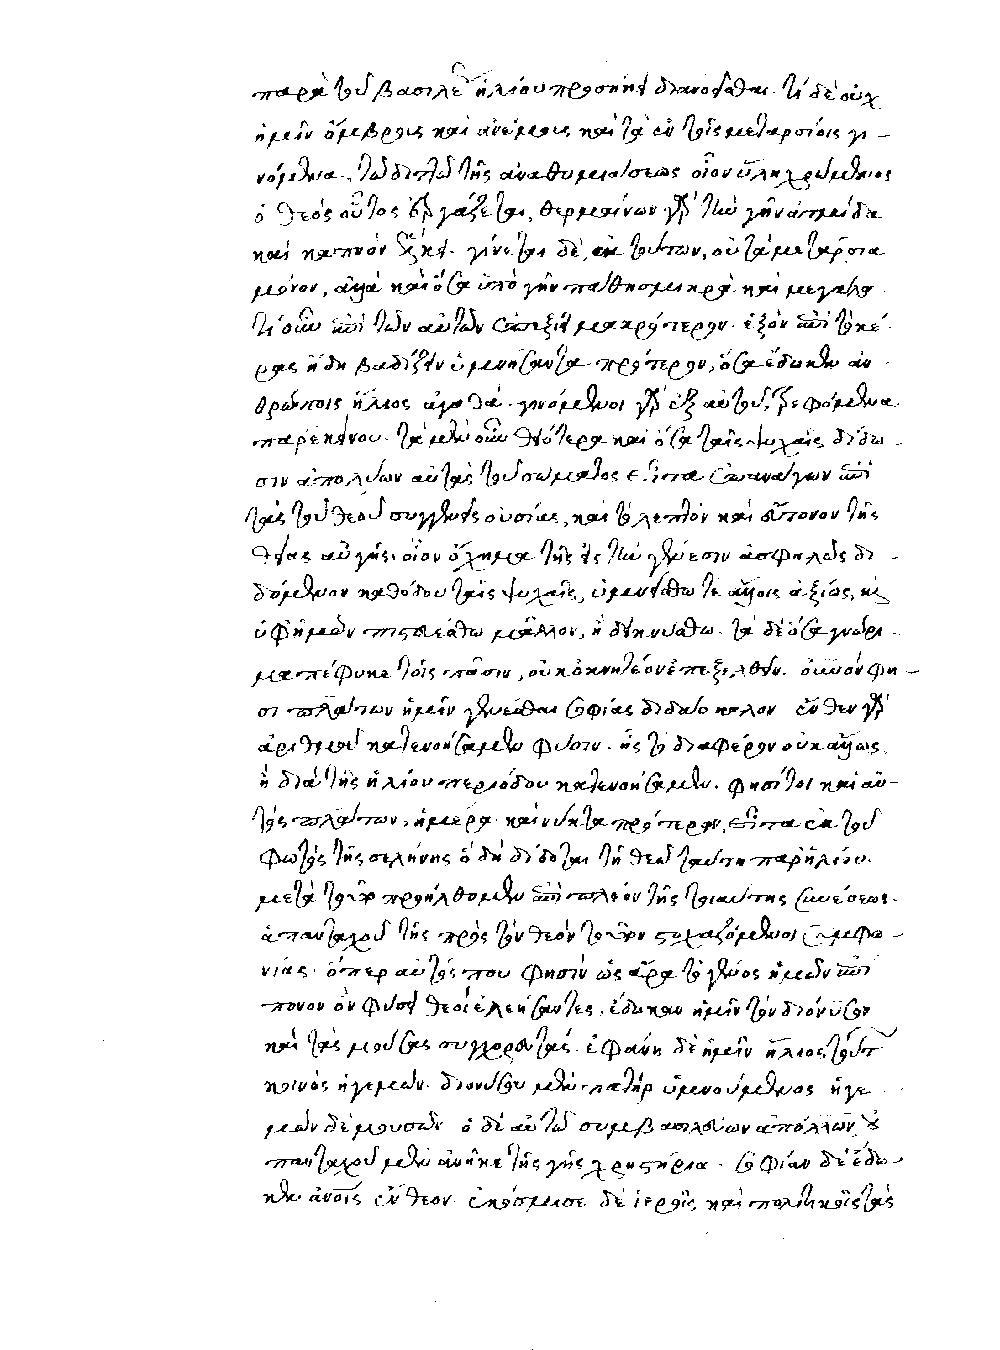 παρὰ τοῦ βασιλέως ἡλίου προσήκει διανοεῖσθαι. τί δὲ οὐχ
ἡμῖν ὄμβροις καὶ ἀνέμοις καὶ τὰ ἐν τοῖς μεταρσίοις γι-
νόμενα, τῷ διττῷ τῆς ἀναθυμιάσεως οἷον ὕλη χρώμενος
ὁ θεὸς οὗτος ἐργάζεται, θερμαίνων γὰρ τὴν γῆν ἀτμίδα
καὶ καπνὸν ἕλκει. γίνεται δὲ ἐκ τούτων, οὐ τὰ μετάρσια
μόνον, ἀλλὰ καὶ ὅσα ὑπὸ γῆν πάθη σμικρὰ καὶ μεγάλα.
τί οὖν ἐπὶ τῶν αὐτῶν ἐπέξειμι μακρότερον. ἐξὸν ἐπὶ τὸ πέ-
ρας ἤδη βαδίζειν ὑμνήσαντα πρότερον, ὅσα ἔδωκεν ἀν-
θρώποις ἥλιος ἀγαθά. γινόμενοι γὰρ ἐξ αὐτοῦ, τρεφόμεθα
παρ' ἐκείνου. τὰ μὲν οὖν θειότερα καὶ ὅσα ταῖς ψυχαῖς δίδω-
σιν ἀπολύων αὐτὰς τοῦ σώματος εἶτα ἐπανάγων ἐπὶ
τὰς τοῦ θεοῦ συγγενεῖς οὐσίας, καὶ τὸ λεπτὸν καὶ εὔτονον τῆς
θείας αὐγῆς οἷον ὄχημα τῆς εἰς τὴν γένεσιν ἀσφαλῶς δι-
δόμενον καθόδου ταῖς ψυχαῖς, ὑμνείσθω τε ἄλλοις ἀξίως, καὶ
ὑφ' ἡμῶν πιστευέσθω μᾶλλον, ἢ δεικνύσθω. τὰ δὲ ὅσα γνώρι-
μα πέφυκε τοῖς πᾶσιν, οὐκ ὀκνητέον ἐπεξελθεῖν. οὐρανόν φη-
σι πλάτων ἡμῖν γενέσθαι σοφίας διδάσκαλον. ἐνθένδε γὰρ
ἀριθμοῦ κατενοήσαμεν φύσιν. ἧς τὸ διαφέρον οὐκ ἄλλως
ἢ διὰ τῆς ἡλίου περιόδου κατενοήσαμεν. φησί τοι καὶ αὐ-
τὸς πλάτων, ἡμέραν καὶ νύκτα πρότερον, εἶτα ἐκ τοῦ
φωτὸς τῆς σελήνης ὃ δὴ δίδοται τῇ θεῷ ταύτῃ παρ' ἡλίου.
μετὰ τοῦτο προήλθομεν ἐπὶ πλέον τῆς τοιαύτης συνέσεως.
ἁπανταχοῦ τῆς πρὸς τὸν θεὸν τοῦτον στοχαζόμενοι συμφω-
νίας. ὅπερ αὐτός που φησὶν ὡς ἄρα τὸ γένος ἡμῶν ἐπί-
πονον ὂν φύσει θεοὶ ἐλεήσαντες, ἔδωκαν ἡμῖν τὸν διόνυσον
καὶ τὰς μούσας συγχορευτάς. ἐφάνη δὲ ἡμῖν ἥλιος τούτων
κοινὸς ἡγεμών. διονύσου μὲν πατὴρ ὑμνούμενος ἡγε-
μὼν δὲ μουσῶν. ὁ δὲ αὐτῷ συμβασιλεύων ἀπόλλων, οὐ
πανταχοῦ μὲν ἀνῆκε τῆς γῆς χρηστήρια. σοφίαν δὲ ἔδω-
κεν ἀνοῖς ἔνθεον. ἐκόσμησε δὲ ἱεροῖς καὶ πολιτικοῖς τὰς